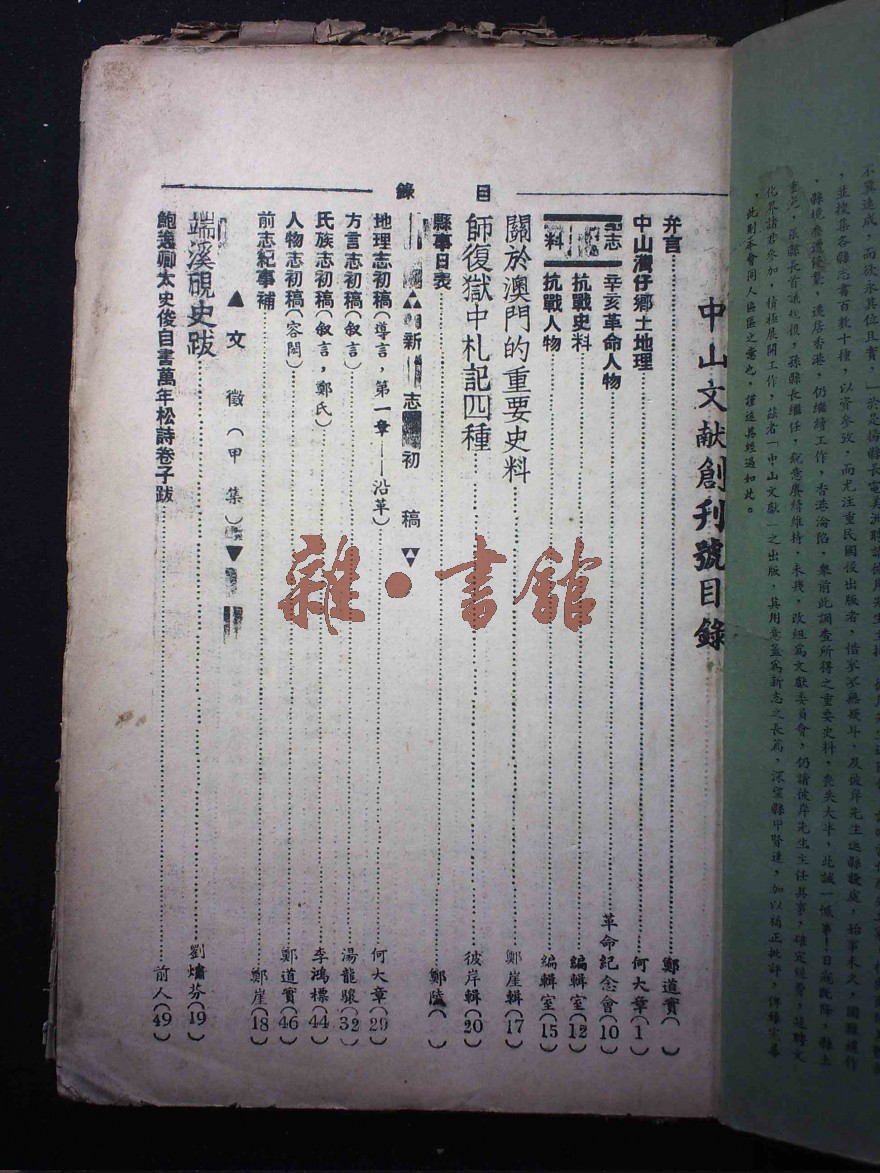 目錄
中山文献創刋號目錄
弁言 鄭道實( )
中山灣仔鄉土地理 何大章(1)
志 辛亥革命人物 革命紀念會(10)
抗戰史料 編輯室(12)
料 抗戰人物 編輯室(15)
關於澳門的重要史料 鄭崖輯(17)
師復獄中札記四種 彼岸輯(20)
縣事日表 鄭 ( )
新志初稿
地理志初稿(導言,第一章——沿革) 何大章(29)
方言志初稿(叙言) 湯龍驤(32)
氏族志初稿(叙言,鄭氏) 李鴻標(44)
人物志初稿(容閎) 鄭道實(46)
前志紀事補 鄭崖(18)
▲文徵(甲集)▼
端溪硯史跋 劉燏芬(19)
鮑逸卿太史俊自書萬年松詩卷子跋 前人(49)
雜·書館
,並搜集各縣志書百數十種,以資參攷,而尤注重民國後出版者,
,縣境叠遭侵擾,遷居香港,仍繼續工作,香港淪陷,舉前此調查所得之重要史料,喪失大半,此誠一憾事!日寇旣降,縣土
孫縣長繼任,銳意賡續維持,未幾,改組爲文獻委員會,仍請彼岸先生主任其事,確定經費,延聘文
化界諸君參加,積極展開工作,茲者「中山文獻」之出版,其用意蓋爲新志之長篇,深望縣中賢達,加以補正批評,俾臻完善
,此則本會同人區區之意也,謹述其經過如此。